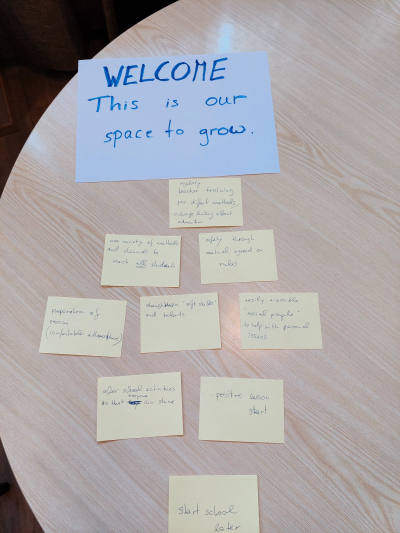 WELCOME
This is our
space to grow.
regulary
teacher training
for diffrent methods,
about
education
use variety of methods
and channels to
reach all students
safety through
mutual agreed on
rules
Preparation of
room
(comfortable atmosphere)
"soft skills"
and talents
easily accessible
"social people"
to help with personal
issues
after school activities
so that everyone can shine
positive lesson
start
start school
later